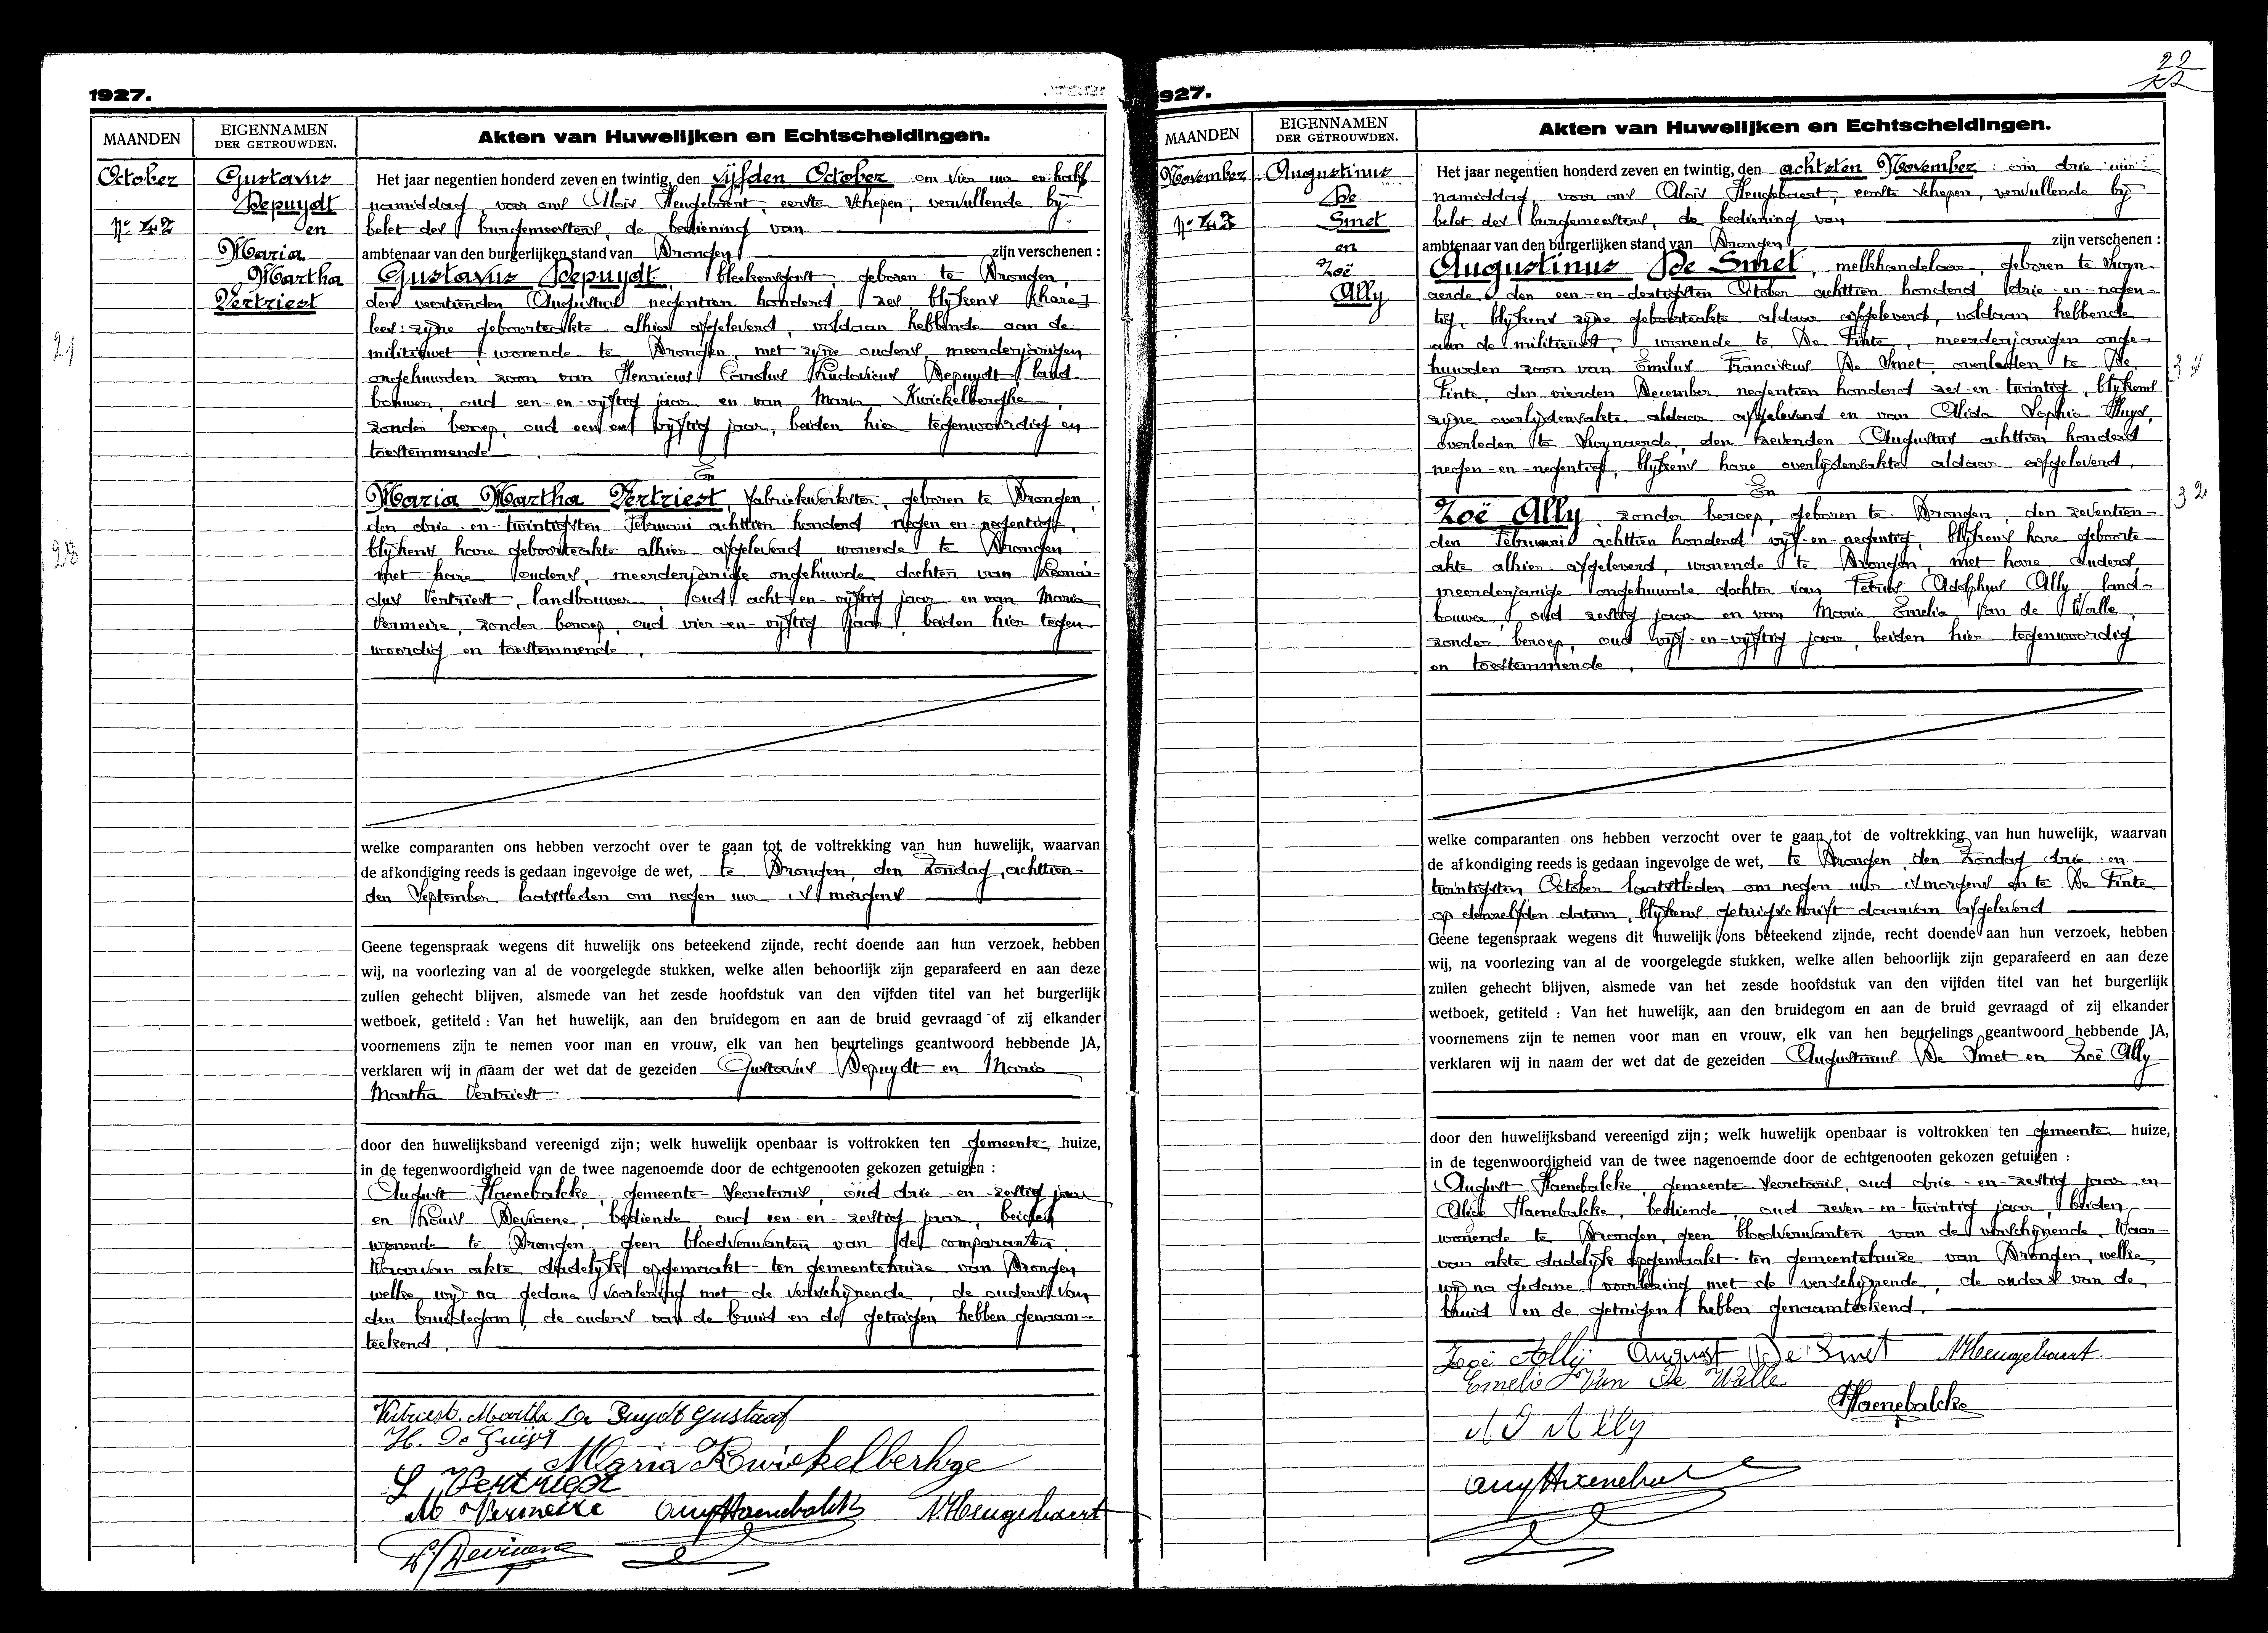 1927.
MAANDEN
EIGENNAMEN
DER GETROUWDEN.
Akten van Huwelijken en Echtscheidingen.
October
Nr 42
Gustavus
Depuydt
en
Maria
Martha
Vertriest
21
28
Het jaar negentien honderd zeven en twintig, den vijfden October om vier uur en half
namiddag, voor ons Aloïs Heugebaert, eerste schepen, vervullende bij
belet des burgemeesters, de bediening van
ambtenaar van den burgerlijken stand van Drongen zijn verschenen :
Gustavus Depuydt, bleekersgast, geboren te Drongen,
den veertienden Augustus negentien honderd zes, blijkens [hare]
lees: zijne geboorteakte alhier afgeleverd, voldaan hebbende aan de
militiewet, wonende te Drongen, met zijne ouders, meerderjarigen
ongehuwden zoon van Henricus Carolus Ludovicus Depuydt, land-
bouwer, oud een-en-vijftig jaar en van Maria Kwickelberghe,
zonder beroep, oud een en vijftig jaar, beiden hier tegenwoordig en
toestemmende
En
Maria Martha Vertriest, fabriekwerkster, geboren te Drongen,
den drie-en-twintigsten Februari achttien honderd negen en negentig,
blijkens hare geboorteakte alhier afgeleverd, wonende te Drongen
met hare ouders, meerderjarige ongehuwde dochter van Leonar-
dus Vertriest, landbouwer, oud acht-en-vijftig jaar en van Maria
Vermeire, zonder beroep, oud vier-en-vijftig jaar, beiden hier tegen-
woordig en toestemmende.
welke comparanten ons hebben verzocht over te gaan tot de voltrekking van hun huwelijk, waarvan
de afkondiging reeds is gedaan ingevolge de wet, te Drongen, den Zondag, achttien-
den September laatstleden om negen uur 's morgens
Geene tegenspraak wegens dit huwelijk ons beteekend zijnde, recht doende aan hun verzoek, hebben
wij, na voorlezing van al de voorgelegde stukken, welke allen behoorlijk zijn geparafeerd en aan deze
zullen gehecht blijven, alsmede van het zesde hoofdstuk van den vijfden titel van het burgerlijk
wetboek, getiteld : Van het huwelijk, aan den bruidegom en aan de bruid gevraagd of zij elkander
voornemens zijn te nemen voor man en vrouw, elk van hen beurtelings geantwoord hebbende JA,
verklaren wij in naam der wet dat de gezeiden Gustavus Depuydt en Maria
Martha Vertriest
door den huwelijksband vereenigd zijn; welk huwelijk openbaar is voltrokken ten gemeente huize,
in de tegenwoordigheid van de twee nagenoemde door de echtgenooten gekozen getuigen :
August Haenebalcke, gemeente-Secretaris, oud drie-en-zestig jaar
en Louis Deviaene, bediende, oud een-en-zestig jaar, beiden
wonende te Drongen, geen bloedverwanten van de comparanten.
Waarvan akte dadelijk opgemaakt ten gemeentehuize van Drongen
welke wij na gedane voorlezing met de verschijnende, de ouders van
den bruidegom, de ouders van de bruid en de getuigen hebben genaam-
teekend.
Vertriest. Martha De Puydt Gustaaf
H. De Puijdt
Maria Kwickelberhge
L Vertriest
M Vermeire Aug Haenebalcke A. Heugebaert
L. Deviaene
1927.
22
MAANDEN
EIGENNAMEN
DER GETROUWDEN.
Akten van Huwelijken en Echtscheidingen.
November
Nr 43
Augustinus
De
Smet
en
Zoë
Ally
34
32
Het jaar negentien honderd zeven en twintig, den achtsten November om drie uur
namiddag, voor ons Aloïs Heugebaert, eerste schepen, vervullende bij
belet des burgemeesters, de bediening van
ambtenaar van den burgerlijken stand van Drongen zijn verschenen :
Augustinus De Smet, melkhandelaar, geboren te Zwijn-
aerde, den een-en-dertigsten October achttien honderd drie-en-negen-
tig, blijkens zijne geboorteakte aldaar afgeleverd, voldaan hebbende
aan de militiewet, wonende te De Pinte, meerderjarigen onge-
huwden zoon van Emilus Franciscus De Smet, overleden te De
Pinte, den vierden December negentien honderd zes-en-twintig, blijkens
zijne overlijdensakte aldaar afgeleverd en van Alida Sophia Huys,
overleden te Zwynaerde, den zevenden Augustus achttien honderd
negen-en-negentig, blijkens hare overlijdensakte aldaar afgeleverd,
En
Zoë Ally, zonder beroep, geboren te Drongen, den zeventien-
den Februari achttien honderd vijf-en-negentig, blijkens hare geboorte-
akte alhier afgeleverd, wonende te Drongen, met hare ouders,
meerderjarige ongehuwde dochter van Petrus Adolphus Ally, land-
bouwer, oud zestig jaar en van Maria Emelia Van de Walle,
zonder beroep, oud vijf-en-vijftig jaar, beiden hier tegenwoordig
en toestemmende.
welke comparanten ons hebben verzocht over te gaan tot de voltrekking van hun huwelijk, waarvan
de afkondiging reeds is gedaan ingevolge de wet, te Drongen, den Zondag drie-en
twintigsten October laatstleden om negen uur 's morgens en te De Pinte
op denzelfden datum, blijkens getuigschrift daarvan afgeleverd
Geene tegenspraak wegens dit huwelijk ons beteekend zijnde, recht doende aan hun verzoek, hebben
wij, na voorlezing van al de voorgelegde stukken, welke allen behoorlijk zijn geparafeerd en aan deze
zullen gehecht blijven, alsmede van het zesde hoofdstuk van den vijfden titel van het burgerlijk
wetboek, getiteld : Van het huwelijk, aan den bruidegom en aan de bruid gevraagd of zij elkander
voornemens zijn te nemen voor man en vrouw, elk van hen beurtelings geantwoord hebbende JA,
verklaren wij in naam der wet dat de gezeiden Augustinus De Smet en Zoë Ally
door den huwelijksband vereenigd zijn; welk huwelijk openbaar is voltrokken ten gemeente huize,
in de tegenwoordigheid van de twee nagenoemde door de echtgenooten gekozen getuigen :
August Haenebalcke, gemeente Secretaris, oud drie-en-zestig jaar en
Alice Haenebalcke, bediende, oud zeven-en-twintig jaar, beiden
wonende te Drongen, geen bloedverwanten van de verschijnende. Waar-
van akte dadelijk opgemaakt ten gemeentehuize van Drongen, welke
wij na gedane voorlezing met de verschijnende, de ouders van de
bruid en de getuigen hebben genaamteekend.
Zoë Ally August De Smet A. Heugebaert.
Emelie Van De Walle
AHaenebalcke
Ally
Aug Haenebalc